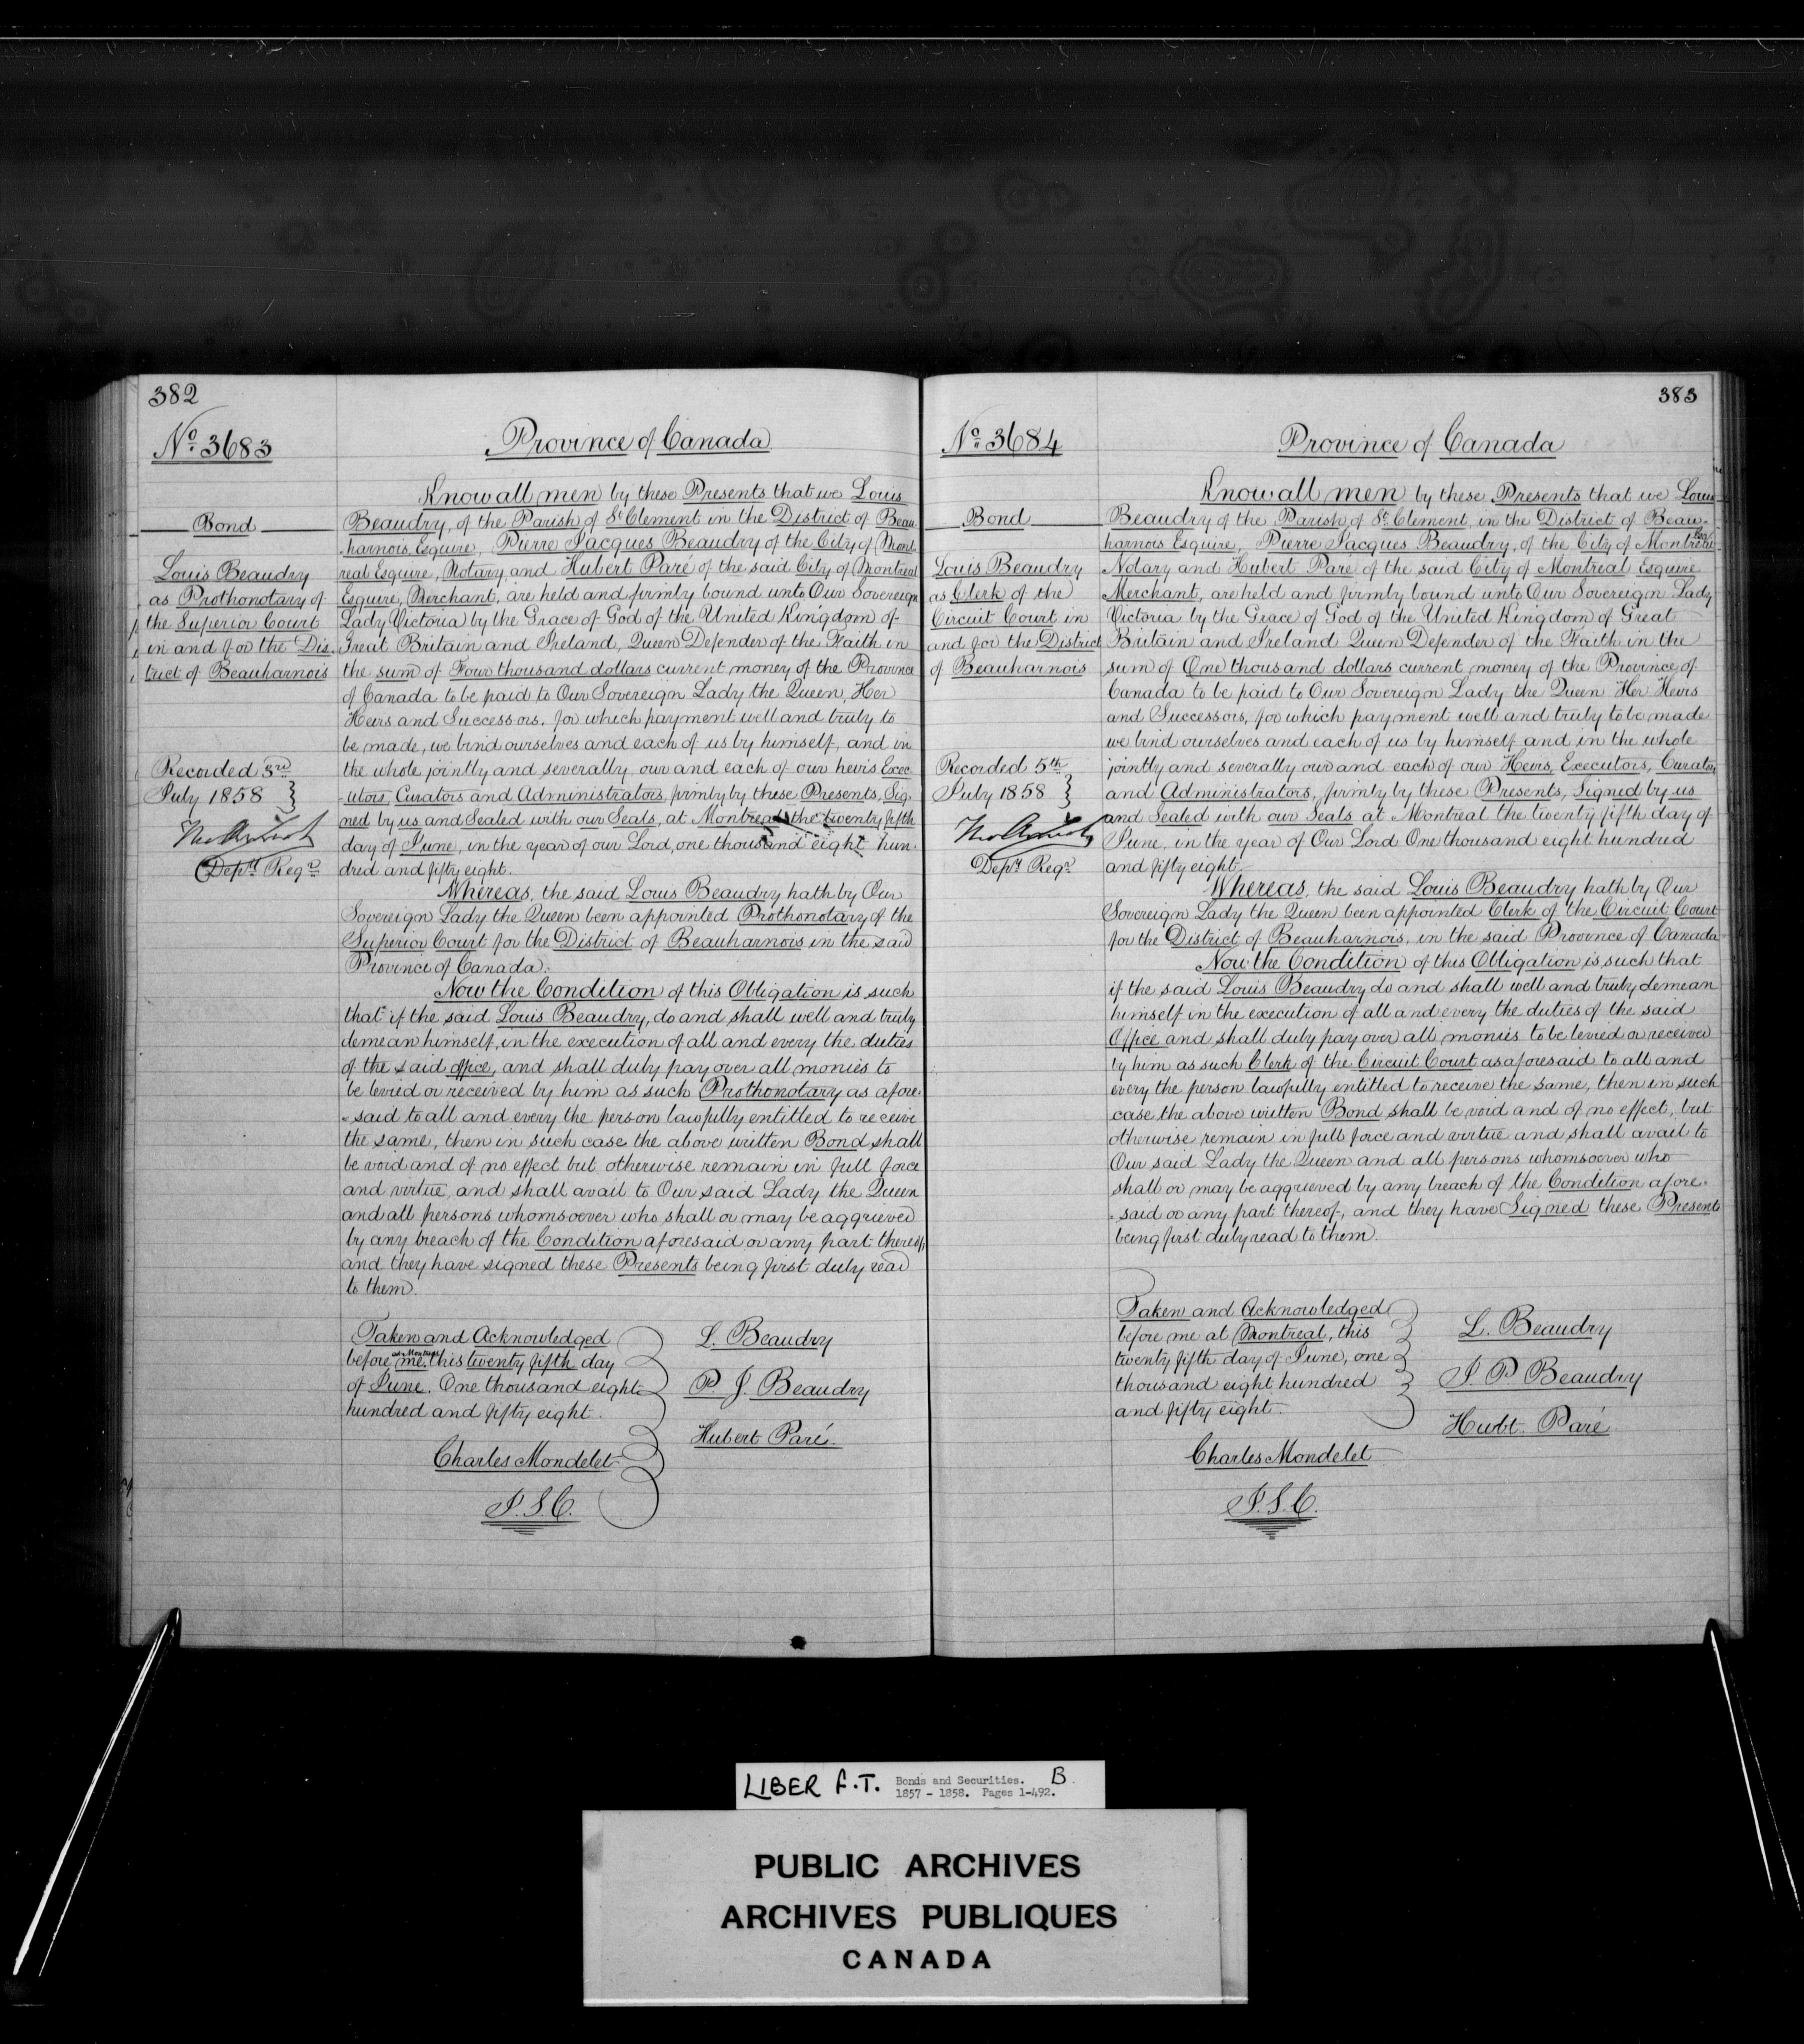 382
No. 3683
Province of Canada
Bond
Louis Beaudry
as Prothonotary of
the Superior Court
in and for the Dis-
trict of Beauharnois
Recorded 3rd
July 1858
Depty Regr
Know all men by these Presents that we Louis
Beaudry, of the Parish of St Clement in the District of Beau-
harnois Esquire, Pierre Jacques Beaudry of the City of Mont-
real Esquire, Notary and Hubert Paré of the said City of Montreal
Esquire, Merchant, are held and firmly bound unto Our Sovereign
Lady Victoria by the Grace of God of the United Kingdom of
Great Britain and Ireland, Queen Defender of the Faith in
the sum of Four thousand dollars current money of the Province
of Canada to be paid to Our Sovereign Lady the Queen, Her
Heirs and Successors, for which payment well and truly to
be made, we bind ourselves and each of us by himself, and in
the whole jointly and severally our and each of our heirs Exec-
-utors, Curators and Administrators, firmly by these Presents, Sig-
ned by us and Sealed with our Seals, at Montreal the twenty fifth
day of June, in the year of our Lord, one thousand eight hun-
dred and fifty eight.
Whereas, the said Louis Beaudry hath by Our
Sovereign Lady the Queen been appointed Prothonotary of the
Superior Court for the District of Beauharnois in the said
Province of Canada.
Now the Condition of this Obligation is such
that if the said Louis Beaudry, do and shall well and truly
demean himself, in the execution of all and every the duties
of the said office, and shall duly pay over all monies to
be levied or received by him as such Prothonotary as afore-
-said to all and every the person lawfully entitled to receive
the same, then in such case the above written Bond shall
be void and of no effect but otherwise remain in full force
and virtue, and shall avail to Our said Lady the Queen
and all persons whomsoever who shall or may be aggrieved
by any breach of the Condition aforesaid or any part thereof,
and they have signed these Presents being first duly read
to them.
Taken and Acknowledged
before me at Montreal this twenty fifth day
of June. One thousand eight
hundred and fifty eight.
Charles Mondelet
J. S. C.
L. Beaudry
P. J. Beaudry
Hubert Paré.
383
No. 3684
Province of Canada
Bond
Louis Beaudry
as Clerk of the
Circuit Court in
and for the District
of Beauharnois
Recorded 5th
July 1858
Depty Regr
Know all men by these Presents that we Louis
Beaudry of the Parish of St. Clement, in the District of Beau-
harnois Esquire, Pierre Jacques Beaudry, of the City of Montreal Esqre
Notary and Hubert Paré of the said City of Montreal Esquire
Merchant, are held and firmly bound unto Our Sovereign Lady
Victoria by the Grace of God of the United Kingdom of Great
Britain and Ireland Queen Defender of the Faith in the
sum of One thousand dollars current money of the Province of
Canada to be paid to Our Sovereign Lady the Queen Her Heirs
and Successors, for which payment well and truly to be made
we bind ourselves and each of us by himself and in the whole
jointly and severally our and each of our Heirs, Executors, Curators
and Administrators, firmly by these Presents, Signed by us
and Sealed with our Seals at Montreal the twenty fifth day of
June, in the year of Our Lord One thousand eight hundred
and fifty eight.
Whereas, the said Louis Beaudry hath by Our
Sovereign Lady the Queen been appointed Clerk of the Circuit Court
for the District of Beauharnois, in the said Province of Canada
Now the Condition of this Obligation is such that
if the said Louis Beaudry do and shall well and truly demean
himself in the execution of all and every the duties of the said
Office and shall duly pay over all monies to be levied or received
by him as such Clerk of the Circuit Court as aforesaid to all and
every the person lawfully entitled to receive the same, then in such
case the above written Bond shall be void and of no effect, but
otherwise remain in full force and virtue and shall avail to
Our said Lady the Queen and all persons whomsoever who
shall or may be aggrieved by any breach of the Condition afore-
-said or any part thereof, and they have Signed these Presents
being first duly read to them.
Taken and Acknowledged
before me at Montreal, this
twenty fifth day of June, one
thousand eight hundred
and fifty eight.
Charles Mondelet
J. S. C.
L. Beaudry
J. P. Beaudry
Hubt. Paré
LIBER F.T. Bonds and Securities. B
1857 - 1858. Pages 1-492.
PUBLIC ARCHIVES
ARCHIVES PUBLIQUES
CANADA